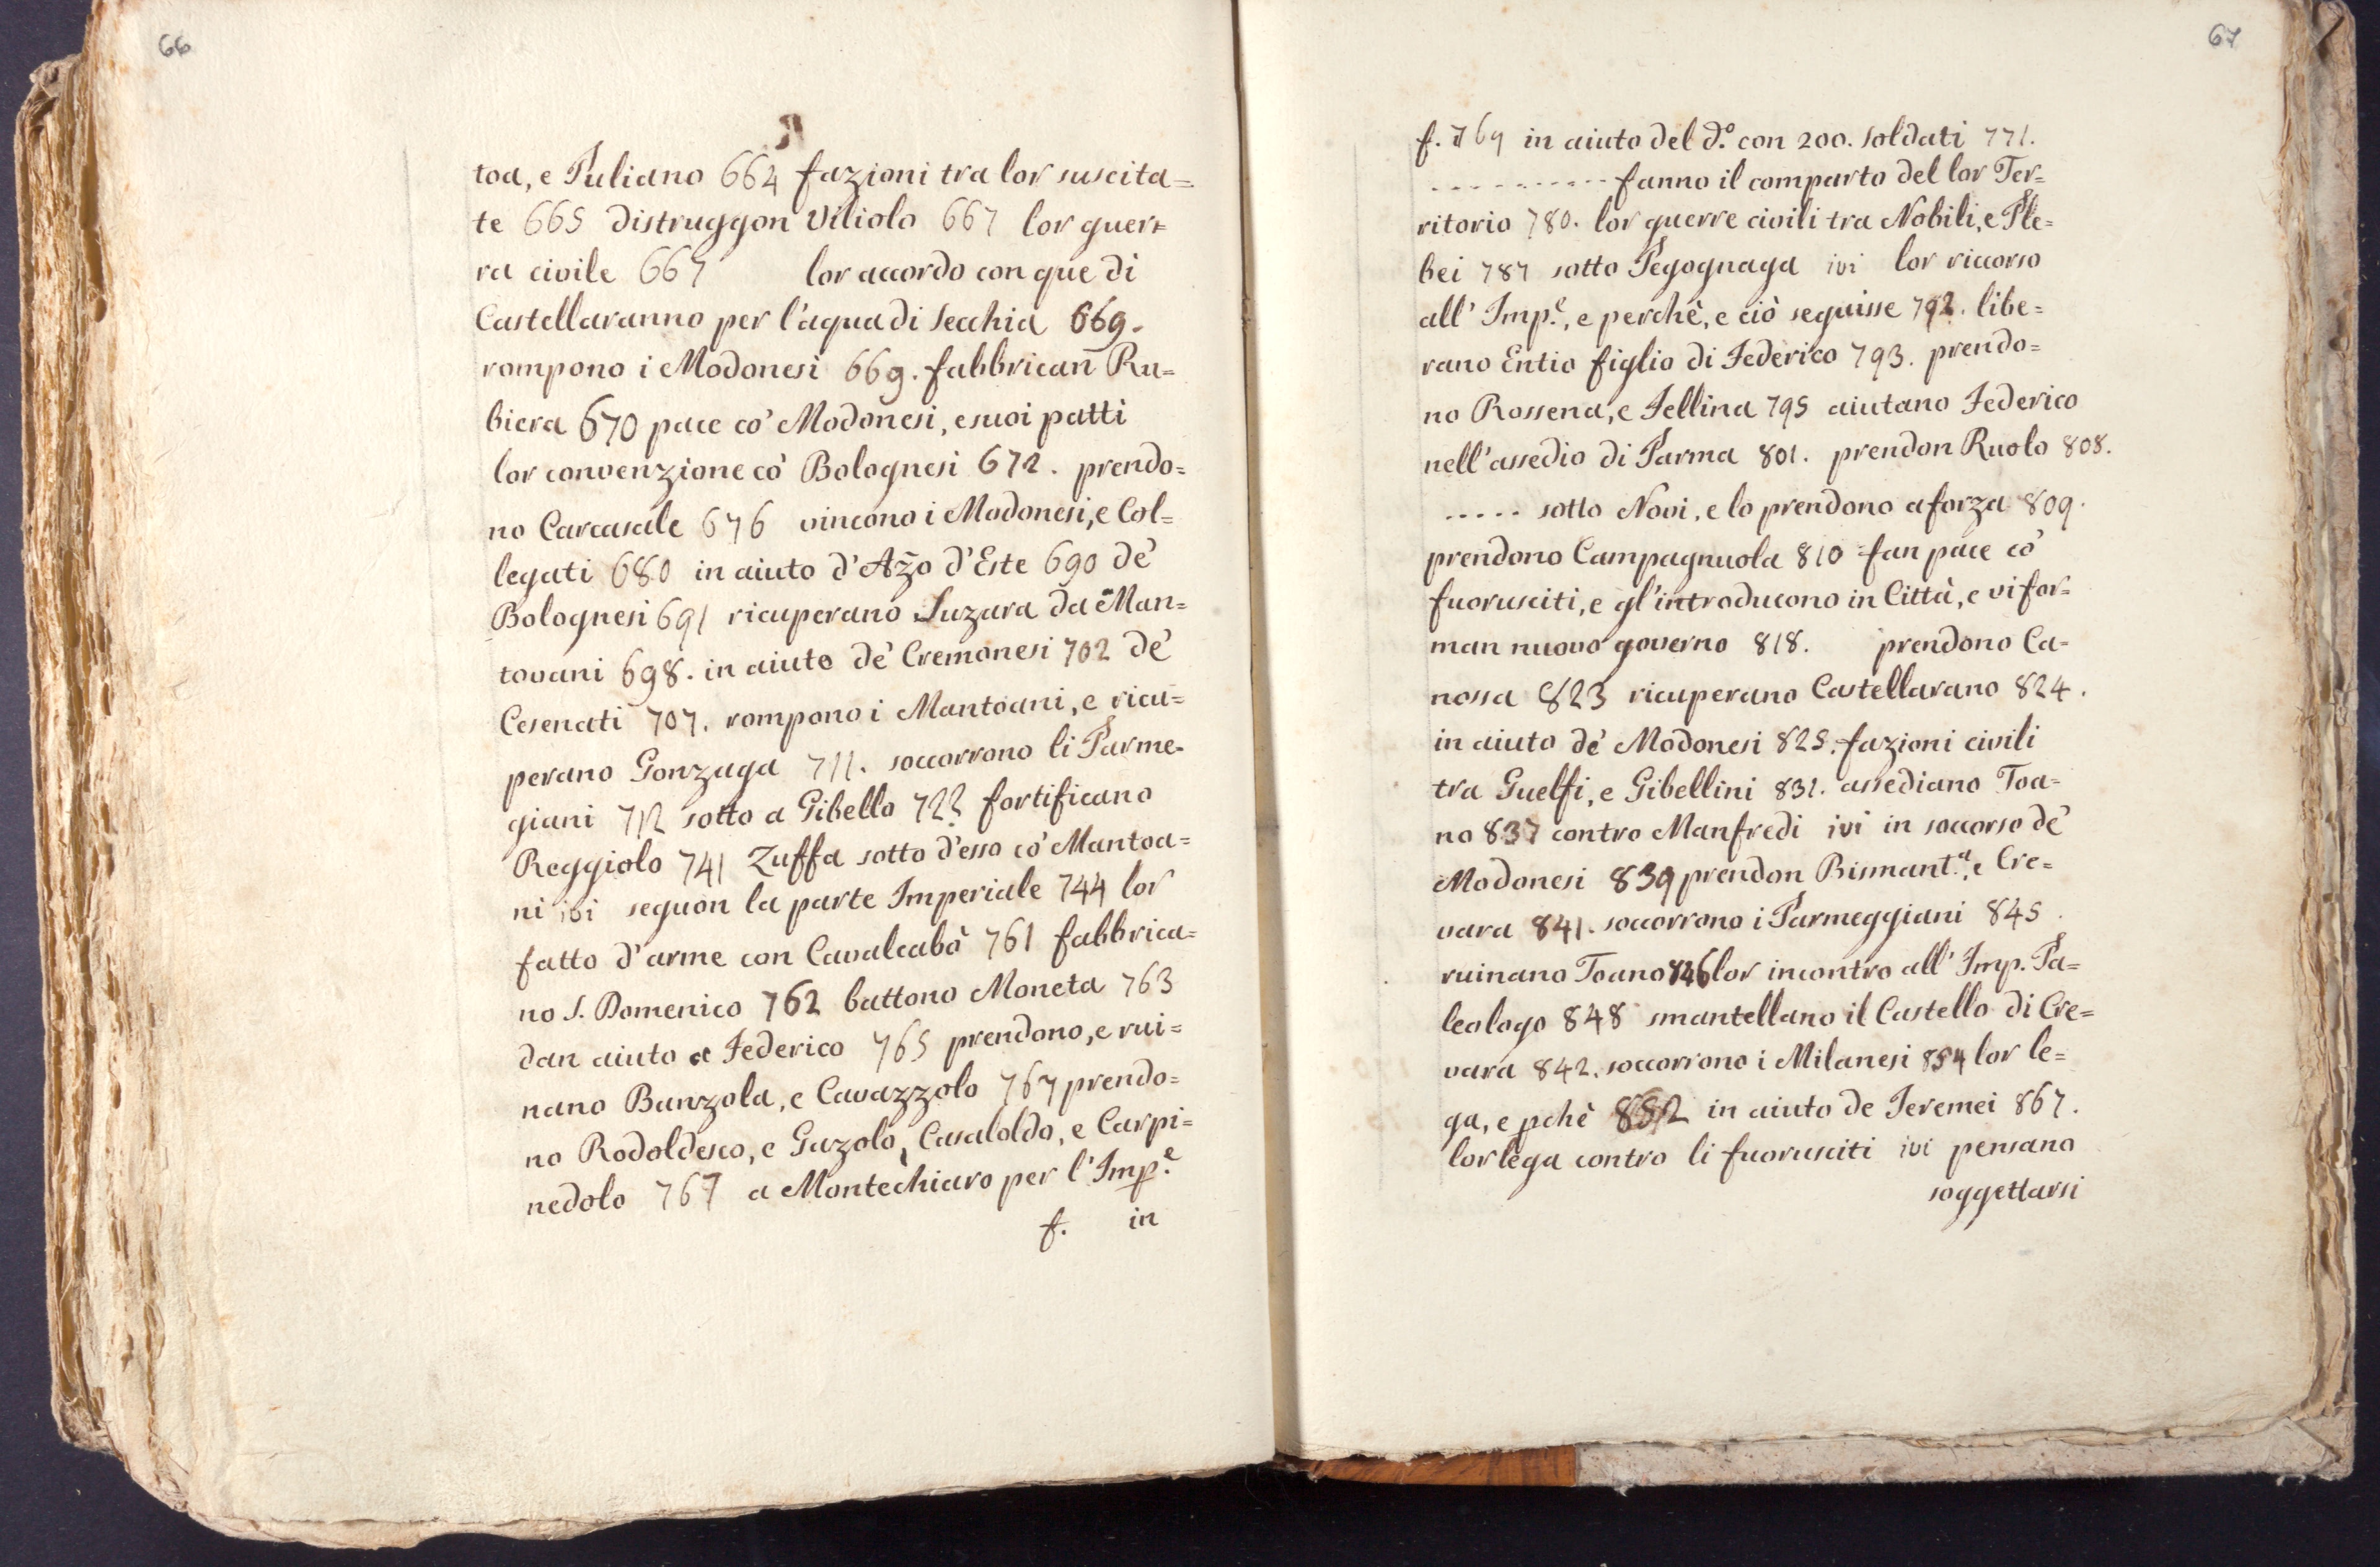 66
toa, e Puliano 664 fazioni tra lor suscita=
te 665 distruggon Viliolo 667 lor guer=
ra civile 667 lor accordo con que di
Castellaranno per l'aqua di Secchia 669.
rompono i Modonesi 669. fabbrican Ru=
biera 670 pace co' Modonesi, e suoi patti
lor convenzione co' Bolognesi 672. prendo=
no Carcasale 676 vincono i Modonesi, e Col=
legati 680 in aiuto d'Azo d'Este 690 de'
Bolognesi 691 ricuperano Suzara da Man=
tovani 698. in aiuto de' Cremonesi 702 de'
Cesenati 707. rompono i Mantoani, e ricu=
perano Gonzaga 711. soccorrono li Parme-
giani 712 sotto a Gibello 722 fortificano
Reggiolo 741 Zuffa sotto d'esso co' Mantoa=
ni ivi seguon la parte Imperiale 744 lor
fatto d'arme con Cavalcabò 761 fabbrica=
no S. Domenico 762 battono Moneta 763
dan aiuto a Federico 765 prendono, e rui=
nano Banzola, e Cavazzolo 767 prendo=
no Rodoldesco, e Gazolo, Casaloldo, e Carpi=
nedolo 767 a Montechiaro per l'Imp.e
f. in
67
f. 769 in aiuto del d.o con 200. soldati 771.
- - - - - - - - - - fanno il comparto del lor Ter=
ritorio 780. lor guerre civili tra Nobili, e Ple=
bei 787 sotto Pegognaga ivi lor riccorso
all' Imp.e, e perchè, e ciò seguisse 792. libe=
rano Entio figlio di Federico 793. prendo=
no Rossena, e Fellina 795 aiutano Federico
nell'assedio di Parma 801. prendon Ruolo 808.
- - - - - sotto Novi, e lo prendono a forza 809.
prendono Campagnuola 810 fan pace co'
fuorusciti, e gl'introducono in Città, e vi for=
man nuovo governo 818. prendono Ca=
nossa 823 ricuperano Castellarano 824.
in aiuto de' Modonesi 825. fazioni civili
tra Guelfi, e Gibellini 831. assediano Toa=
no 837 contro Manfredi ivi in soccorso de'
Modonesi 839 prendon Bismant.a, e Cre=
vara 841. soccorrono i Parmeggiani 845.
ruinano Toano 846 lor incontro all' Imp. Pa=
leologo 848 smantellano il Castello di Cre=
vara 842. soccorrono i Milanesi 854 lor le=
ga, e pchè in aiuto de Geremei 867.
lor lega contro li fuorusciti ivi pensano
soggettarsi